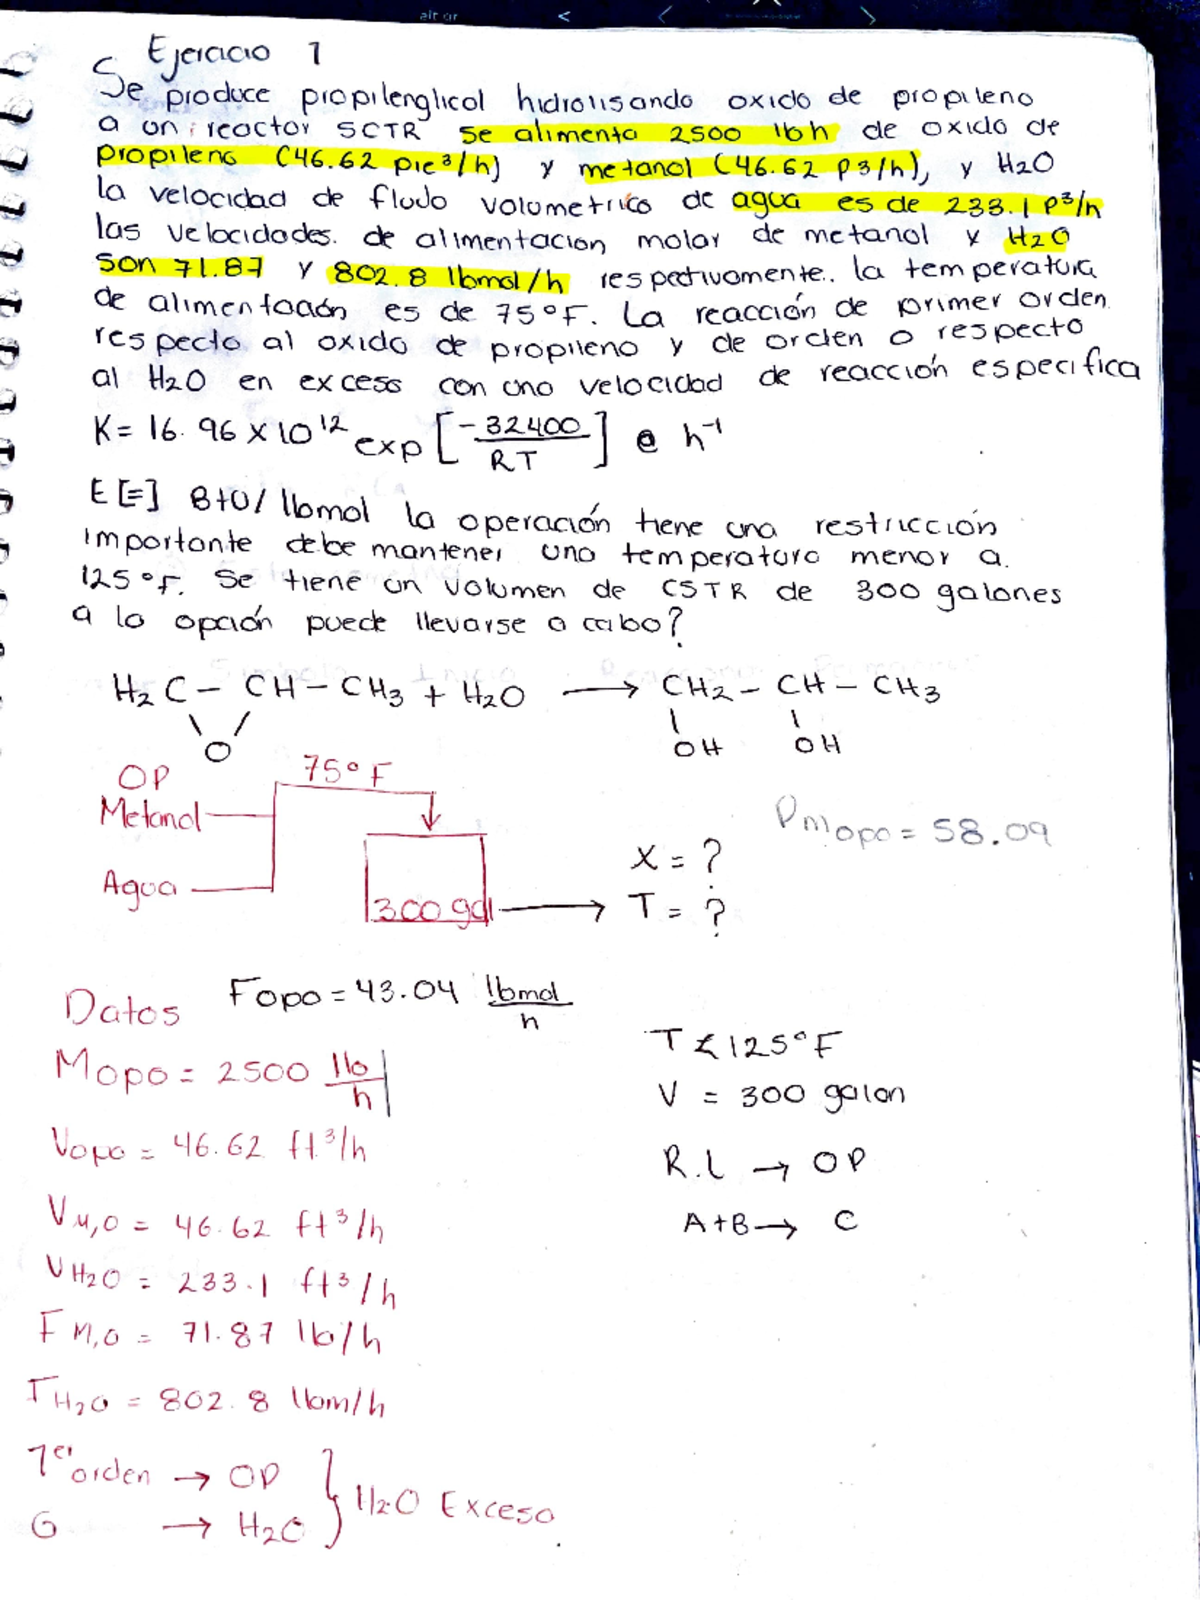 Ejercicio 1
Se produce propilenglicol hidrolisando oxido de propileno
a un reactor SCTR se alimenta 2500 lbh de oxido de
propileno (46.62 pie³/h) y metanol (46.62 p3/h), y H2O
la velocidad de flujo volumetrico de agua es de 233.1 p³/h
las velocidades. de alimentacion molar de metanol y H2O
son 71.87 y 802.8 lbmol/h respectivamente. la temperatura
de alimentación es de 75°F. La reacción de primer orden
respecto al oxido de propileno y de orden 0 respecto
al H2O en exceso con una velocidad de reacción especifica
K = 16.96 x 10¹² exp [-32400/RT] @ h⁻¹
E [=] Btu/lbmol la operación tiene una restricción
importante debe mantener una temperatura menor a
125°F. Se tiene un volumen de CSTR de 300 galones
a la opción puede llevarse a cabo?
H2C - CH - CH3 + H2O → CH2 - CH - CH3
O
OH OH
OP 75°F
Metanol
PMopo = 58.09
X = ?
Agua
300 gal → T = ?
Datos Fopo = 43.04 lbmol/h
T < 125°F
Mopo = 2500 lb/h
V = 300 galon
Vopo = 46.62 ft³/h
R.L → OP
VM,O = 46.62 ft³/h
A+B → C
VH2O = 233.1 ft³/h
FM,O = 71.87 lb/h
FH2O = 802.8 lbm/h
1er orden → OP
0 → H2O } H2O Exceso